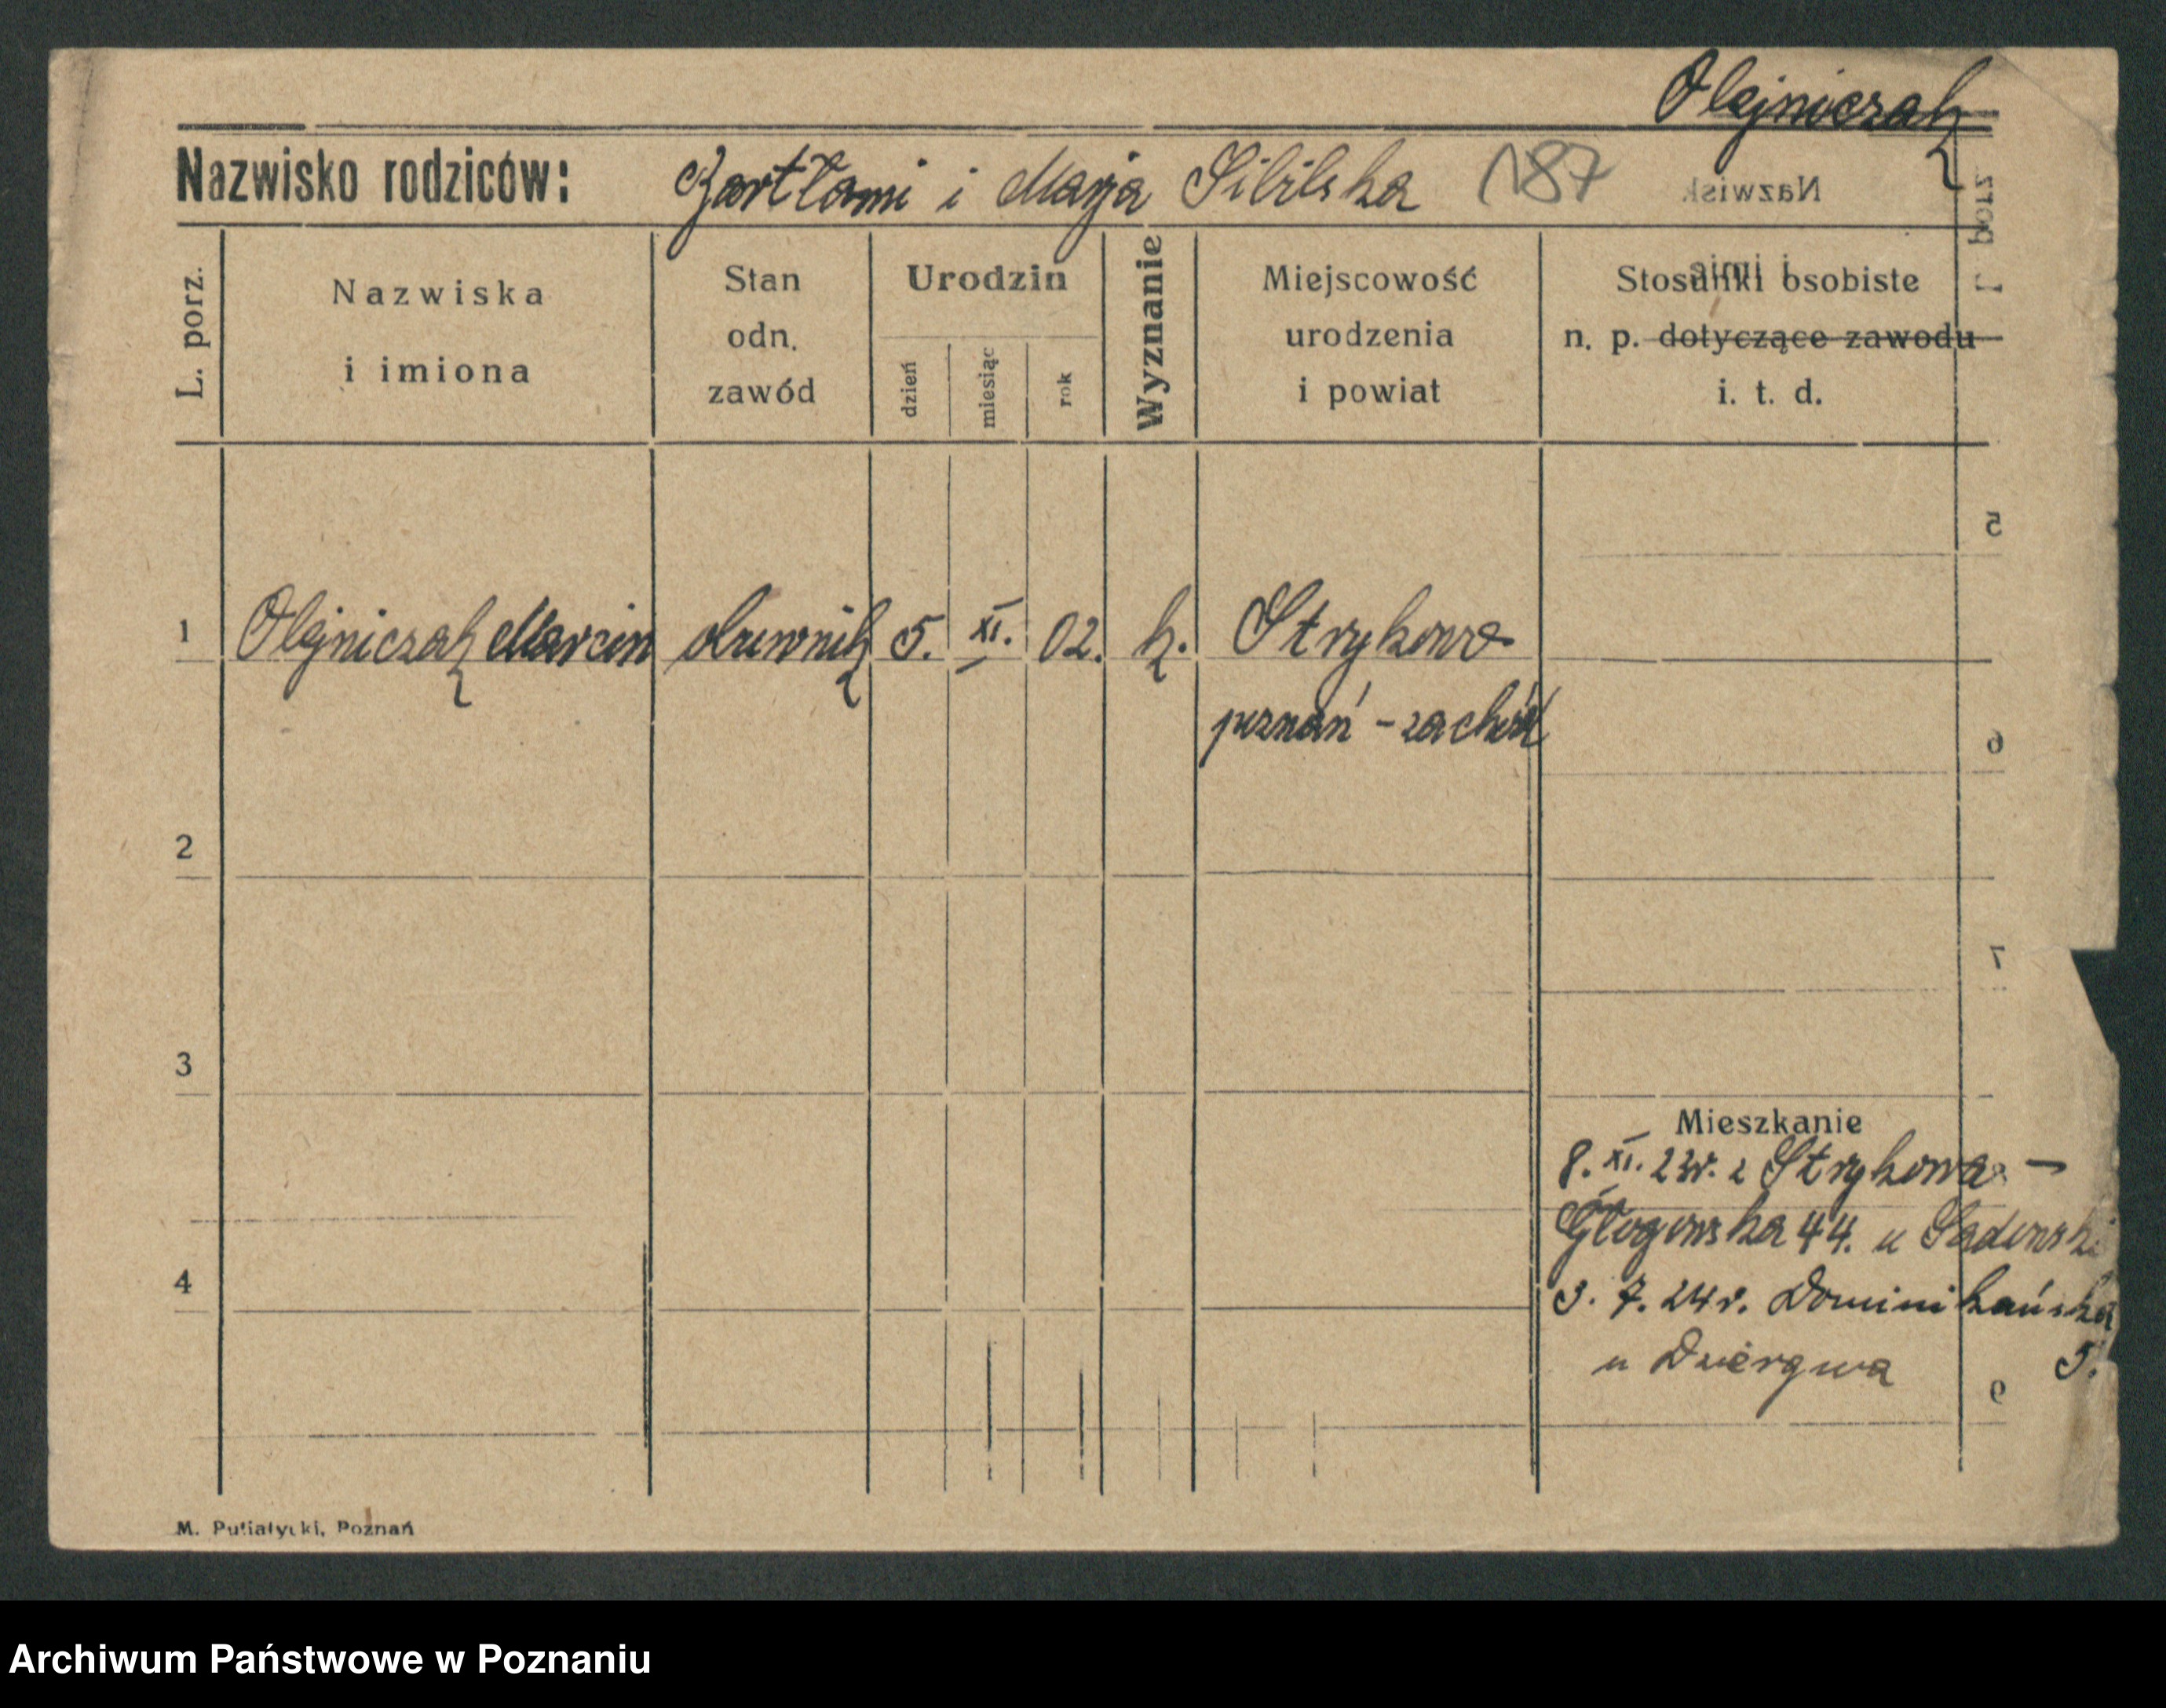 Olejniczak
Nazwisko rodziców: Bartłomi i Marja Sibilska 187
L. porz.
Nazwiska
i imiona
Stan
odn.
zawód
Urodzin
dzień
miesiąc
rok
Wyznanie
Miejscowość
urodzenia
i powiat
Stosunki osobiste
n. p. dotyczące zawodu
i. t. d.
1 Olejniczak Marcin 5. XI. 02. k. Strykowo
poznań - zachód
2
3
4
Mieszkanie
8. XI. 23r. z Strykowa -
Głogowska 44. u
3. 7. 24r. Dominikańska
u 5.
M. Putiatycki, Poznań
Archiwum Państwowe w Poznaniu